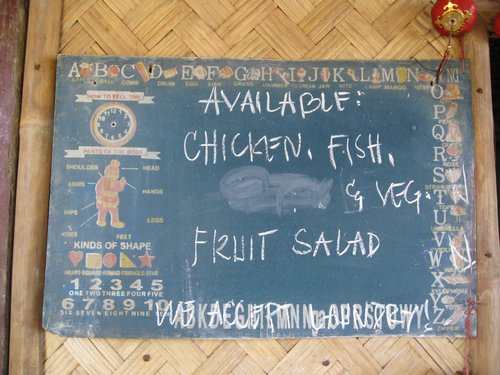 A B C D E F G H I J K L M N
APPLE BALL COMB DRUM EGG FISH GRASS HAMMER ICE CREAM JAR KITE LAMP MANGO
HOW TO SELL TIME
PARTS OF THE BODY
SHOULDER HEAD
ARMS HANDS
HIPS LEGS
KNEE FEET
KINDS OF SHAPE
HEART SQUARE ROUND TRIANGLE STAR
1 2 3 4 5
ONE TWO THREE FOUR FIVE
6 7 8 9 10
SIX SEVEN EIGHT NINE
AVAILABLE:
CHICKEN, FISH,
& VEG.
FRUIT SALAD
WE ACCEPT LAUNDRY!
O
P
Q
R
S
T
U
V
W
X
Y
Z
ZIPPER